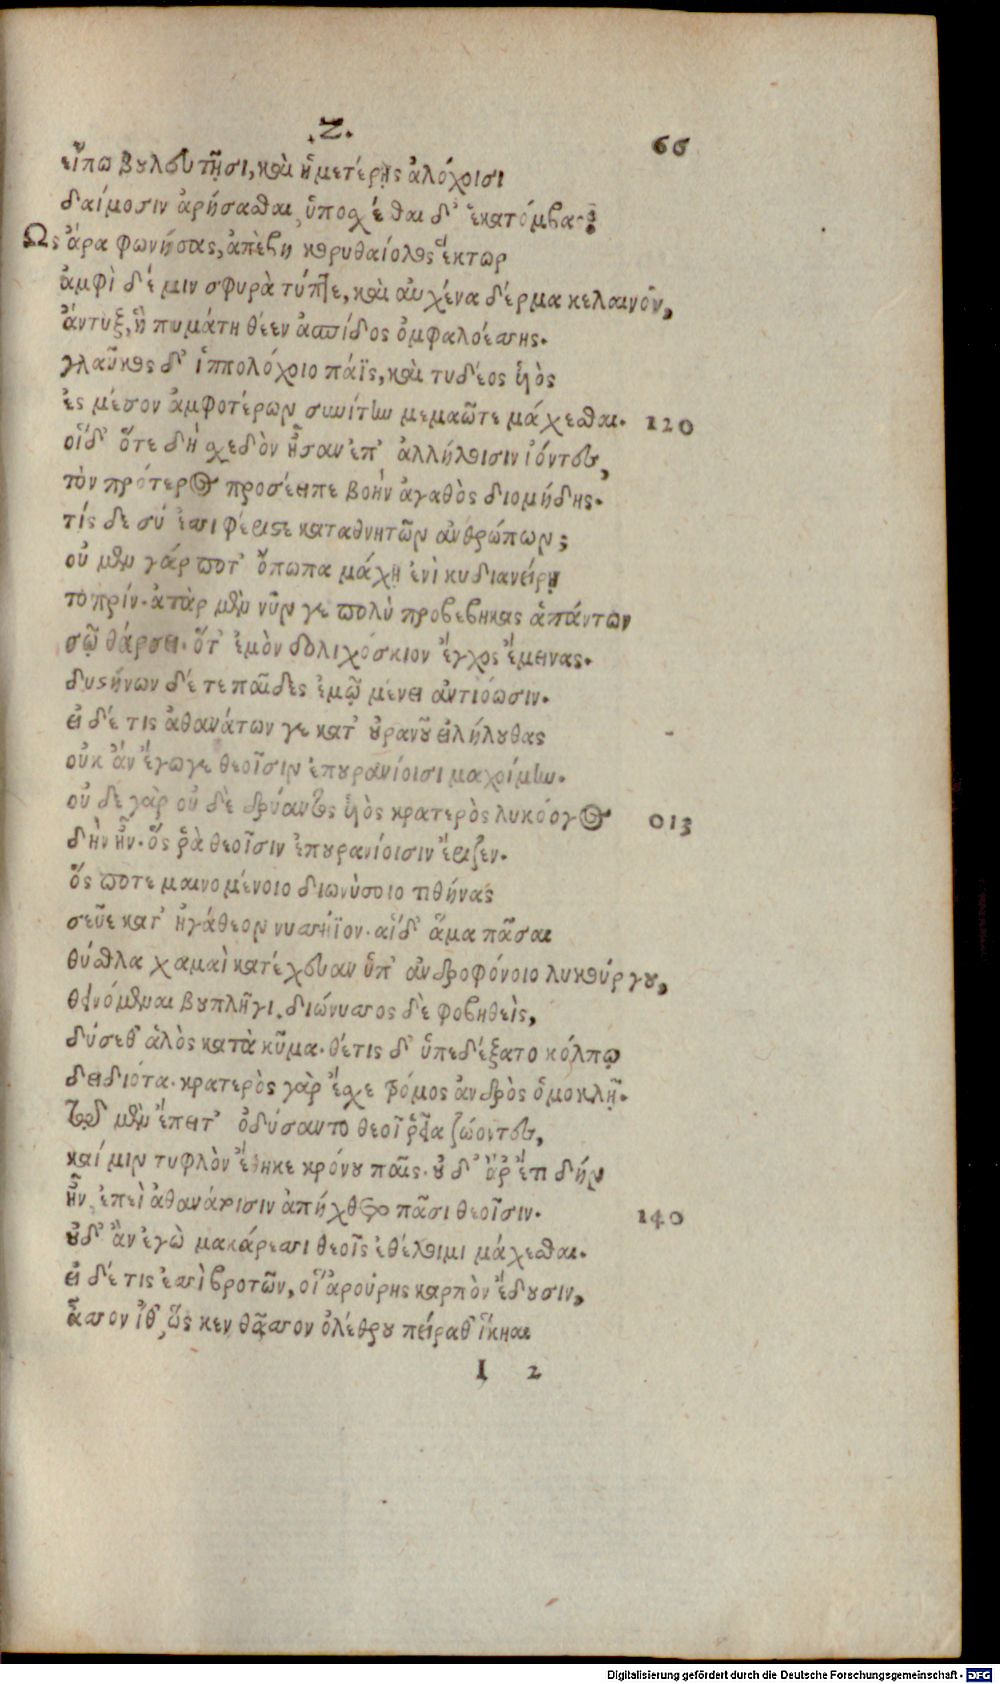 .Ζ. 66
εἴπω βουλευτῇσι, καὶ ἡμετέρῃς ἀλόχοισι
δαίμοσιν ἀρήσασθαι, ὑποσχέσθαι δ' ἑκατόμβας.
Ὣς ἄρα φωνήσας, ἀπέβη κορυθαίολος ἕκτωρ
ἀμφὶ δέ μιν σφυρὰ τύπτε, καὶ αὐχένα δέρμα κελαινὸν,
ἄντυξ, ἣ πυμάτη θέεν ἀσπίδος ὀμφαλοέσσης.
γλαῦκος δ' ἱππολόχοιο πάϊς, καὶ τυδέος υἱὸς
ἐς μέσον ἀμφοτέρων συνίτην μεμαῶτε μάχεσθαι. 120
οἱ δ' ὅτε δὴ σχεδὸν ἦσαν ἐπ' ἀλλήλοισιν ἰόντες,
τὸν πρότερος προσέειπε βοὴν ἀγαθὸς διομήδης.
τίς δὲ σύ ἐσσι φέριστε καταθνητῶν ἀνθρώπων;
οὐ μὲν γάρ ποτ' ὄπωπα μάχῃ ἐνὶ κυδιανείρῃ
τοπρίν. ἀτὰρ μὲν νῦν γε πολὺ προβέβηκας ἁπάντων
σῷ θάρσει. ὅτ' ἐμὸν δολιχόσκιον ἔγχος ἔμεινας.
δυστήνων δέ τε παῖδες ἐμῷ μένει ἀντιόωσιν.
εἰ δέ τις ἀθανάτων γε κατ' οὐρανοῦ εἰλήλουθας
οὐκ ἂν ἔγωγε θεοῖσιν ἐπουρανίοισι μαχοίμην.
οὐ δὲ γὰρ οὐ δὲ δρύαντος υἱὸς κρατερὸς λυκόοργος 013
δὴν ἦν. ὅς ῥὰ θεοῖσιν ἐπουρανίοισιν ἔριζεν.
ὅς ποτε μαινομένοιο διωνύσοιο τιθήνας
σεῦε κατ' ἠγάθεον νυσσήϊον. αἱ δ' ἅμα πᾶσαι
θύσθλα χαμαὶ κατέχευαν ὑπ' ἀνδροφόνοιο λυκούργου,
θεινόμεναι βουπλῆγι. διώνυσσος δὲ φοβηθεὶς,
δύσεθ' ἁλὸς κατὰ κῦμα. θέτις δ' ὑπεδέξατο κόλπῳ
δειδιότα. κρατερὸς γὰρ ἔχε τρόμος ἀνδρὸς ὁμοκλῇ.
τῷ μὲν ἔπειτ' ὀδύσαντο θεοὶ ῥεῖα ζώοντες,
καί μιν τυφλὸν ἔθηκε κρόνου παῖς. οὐ δ' ἂρ ἔτι δὴν
ἦν, ἐπεὶ ἀθανάτοισιν ἀπήχθετο πᾶσι θεοῖσιν. 140
οὐδ' ἂν ἐγὼ μακάρεσσι θεοῖς ἐθέλοιμι μάχεσθαι.
εἰ δέ τις ἐσσὶ βροτῶν, οἳ ἀρούρης καρπὸν ἔδουσιν,
ἆσσον ἴθ', ὥς κεν θᾶσσον ὀλέθρου πείραθ' ἵκηαι
I 2
Digitalisierung gefördert durch die Deutsche Forschungsgemeinschaft - DFG